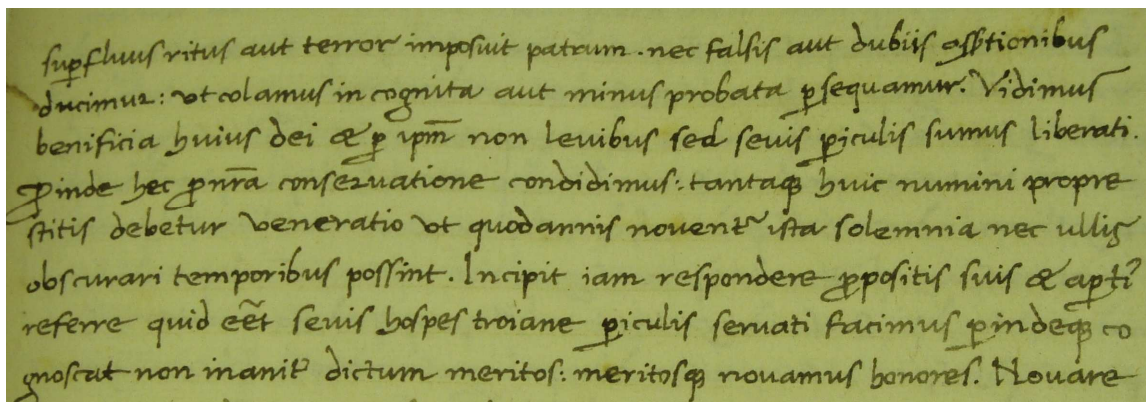 suꝑfluus ritus aut terror imposuit patrum. nec falsis aut dubiis assꝑtionibus
ducimur: vt colamus in cognita aut minus probata ꝑsequamur. Vidimus
benificia huius dei & ꝑ ipm̄ non leuibus sed seuis ꝑiculis sumus liberati.
ꝓinde hec ꝓ nr̄a conseruatione condidimus: tantaqꝫ huic numini propre
stitis debetur veneratio vt quodannis nouent᷑ ista solemnia nec ullis
obscurari temporibus possint. Incipit iam respondere ꝓpositis suis & aꝑti᷑
referre quid eēt seuis hospes troiane ꝑiculis seruati facimus ꝑindeqꝫ co
gnoscat non inanit᷑ dictum meritos: meritosqꝫ nouamus honores. Nouare